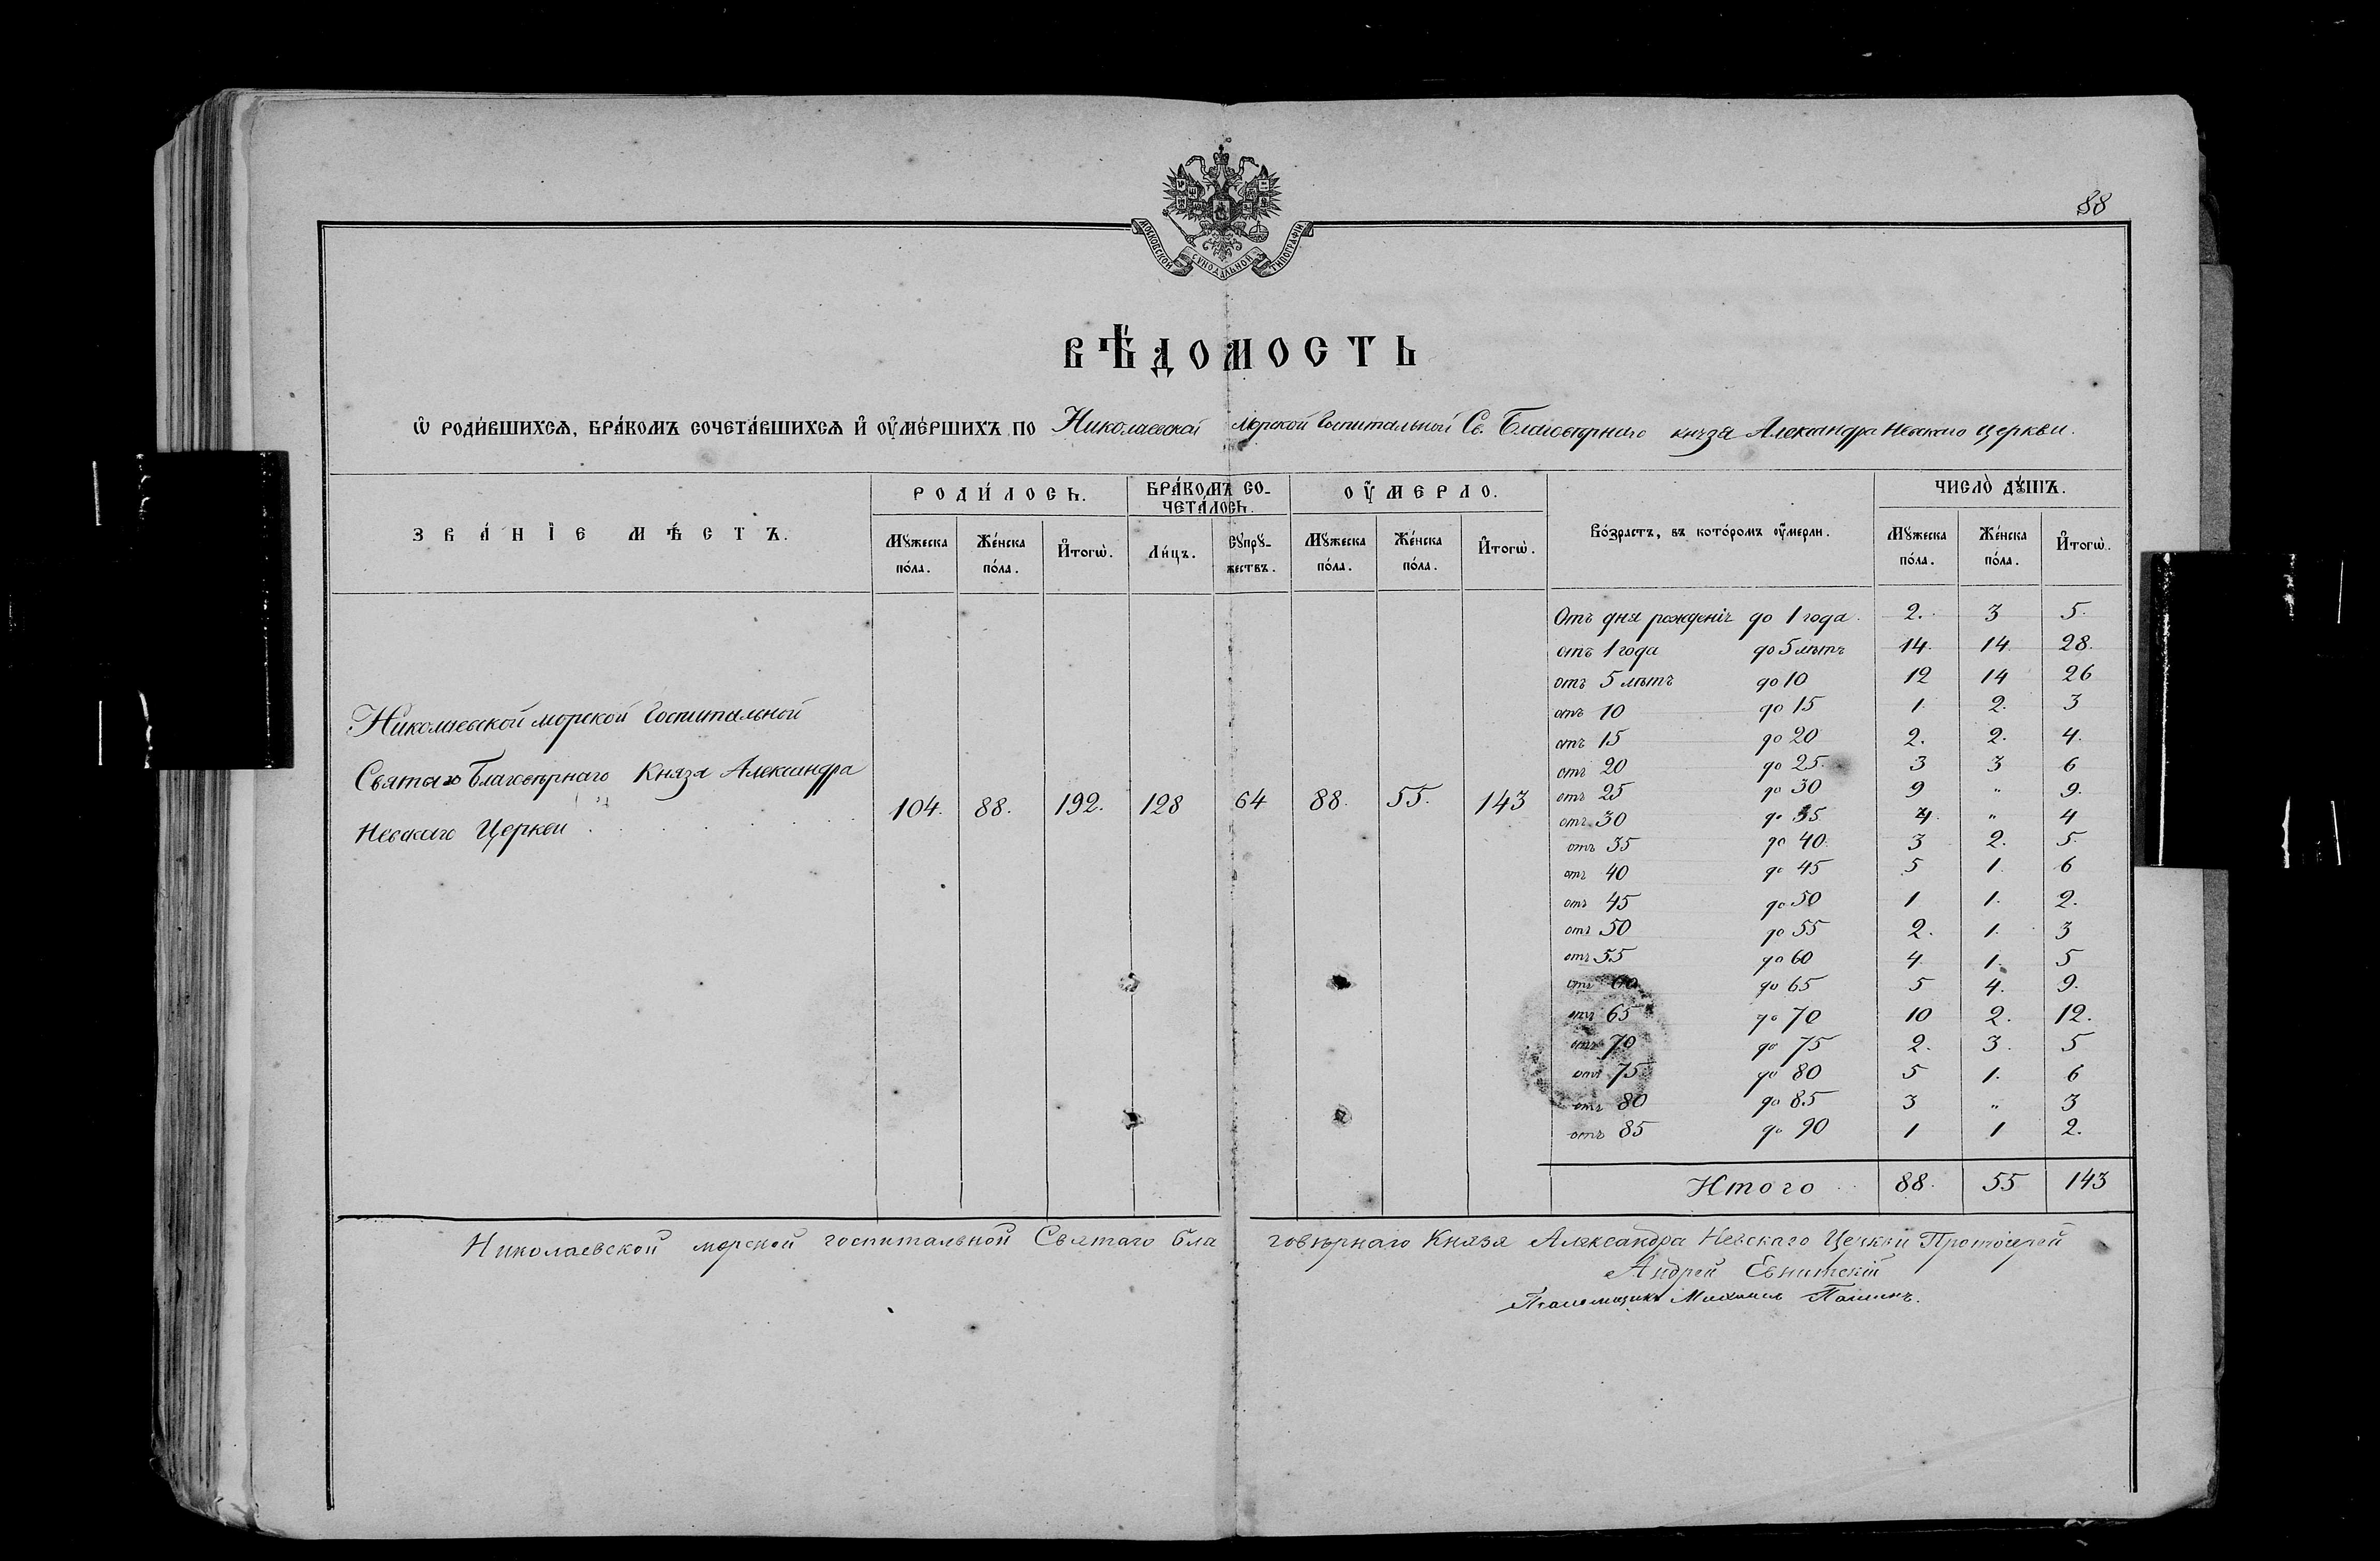 88
МОСКОВСКОЙ СѴНОДАЛЬНОЙ ТИПОГРАФІИ
ВѢ́ДОМОСТЬ
Ѡ҆ РОДИ́ВШИХСѦ, БРА́КОМЪ СОЧЕТА́ВШИХСѦ И҆ ОУ҆МЕ́РШИХЪ ПО Николаевской Морской Госпитальной Св. Благовѣрнаго князя Александра Невскаго церкви.
ЗВА́НІЕ МѢ́СТЪ. РОДИ́ЛОСЬ. БРА́КОМЪ СО-ЧЕТА́ЛОСЬ. ОУ҆́МЕРЛО. Во́зрастъ, въ кото́ромъ оу҆́мерли. ЧИСЛО̀ ДꙊ́ШЪ.
Мꙋ́жеска по́ла. Же́нска по́ла. И҆тогѡ̀. Ли́цъ. Сꙋпрꙋ́-жествъ. Мꙋ́жеска по́ла. Же́нска по́ла. И҆тогѡ̀. Мꙋ́жеска по́ла. Же́нска по́ла. И҆тогѡ̀.
Николаевской морской Госпитальной
Святаго Благовѣрнаго Князя Александра
Невскаго Церкви . . . . . . 104. 88. 192. 128 64 88. 55. 143
Отъ дня рожденія до 1 года. 2. 3 5.
отъ 1 года до 5 лѣтъ 14. 14. 28.
отъ 5 лѣтъ до 10 12 14 26
отъ 10 до 15 1 2. 3
отъ 15 до 20 2. 2. 4.
отъ 20 до 25. 3 3 6
отъ 25 до 30 9 " 9.
отъ 30 до 35 4. " 4
отъ 35 до 40. 3 2. 5.
отъ 40 до 45 5 1. 6
отъ 45 до 50 1 1. 2.
отъ 50 до 55 2. 1. 3
отъ 55 до 60 4. 1. 5
отъ 60 до 65 5 4. 9.
отъ 65 до 70 10 2. 12.
отъ 70 до 75 2. 3. 5
отъ 75 до 80 5 1. 6
отъ 80 до 85 3 " 3
отъ 85 до 90 1 1 2.
Итого 88. 55 143
Николаевской морской госпитальной Святаго Благовѣрнаго Князя Александра Невскаго Церкви Протоіерей
Андрей
Псаломщикъ Михаилъ